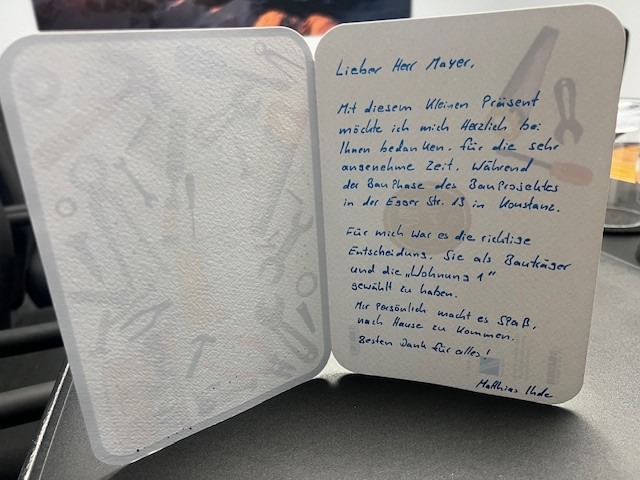 Lieber Herr Mayer,
Mit diesem kleinen Präsent
möchte ich mich Herzlich bei
Ihnen bedanken, für die sehr
angenehme Zeit, während
der BauPhase des BauProjektes
in der Egger Str. 13 in Konstanz.
Für mich war es die richtige
Entscheidung, Sie als Bauträger
und die „Wohnung 1"
gewählt zu haben.
Mir Persönlich macht es SPaß,
nach Hause zu kommen.
Besten Dank für alles!
Matthias Ihde